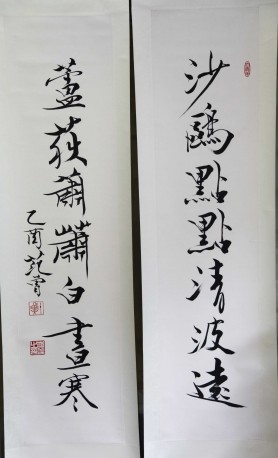 沙鷗點點清波遠
蘆荻蕭蕭白晝寒
乙酉范曾